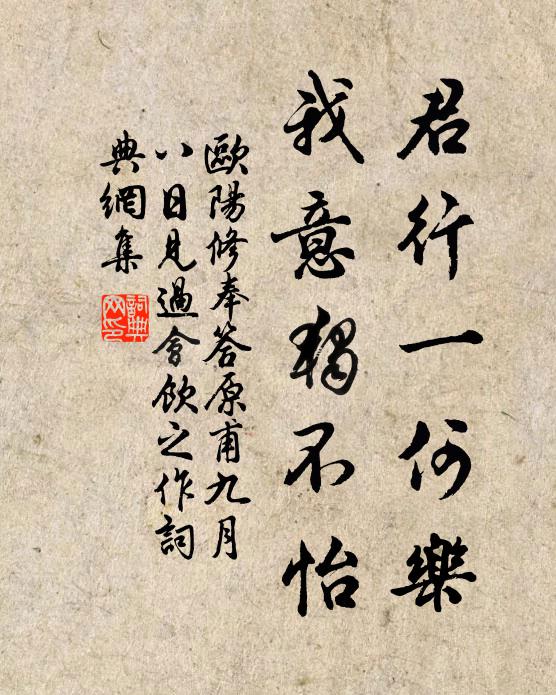 君行一何樂
我意獨不怡
歐陽修奉答原甫九月
八日見過會飲之作詞
典網集
詞典網印